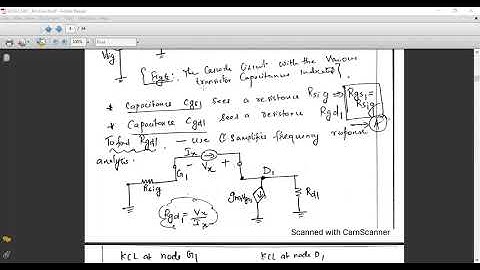 Vsig
[Fig 6: The Cascode Circuit with the Various
transistor Capacitances indicated].
* Capacitance Cgs1 sees a resistance Rsig ⇒ Rgs1 = Rsig
* Capacitance Cgd1 sees a resistance Rgd1 → A
To find Rgd1 – use CS amplifier frequency response
analysis.
Ix
G1 – Vx + D1
Rsig
gm1Vgs1
Rd1
Rgd1 = Vx / Ix
Scanned with CamScanner
KCL at node G1 KCL at node D1